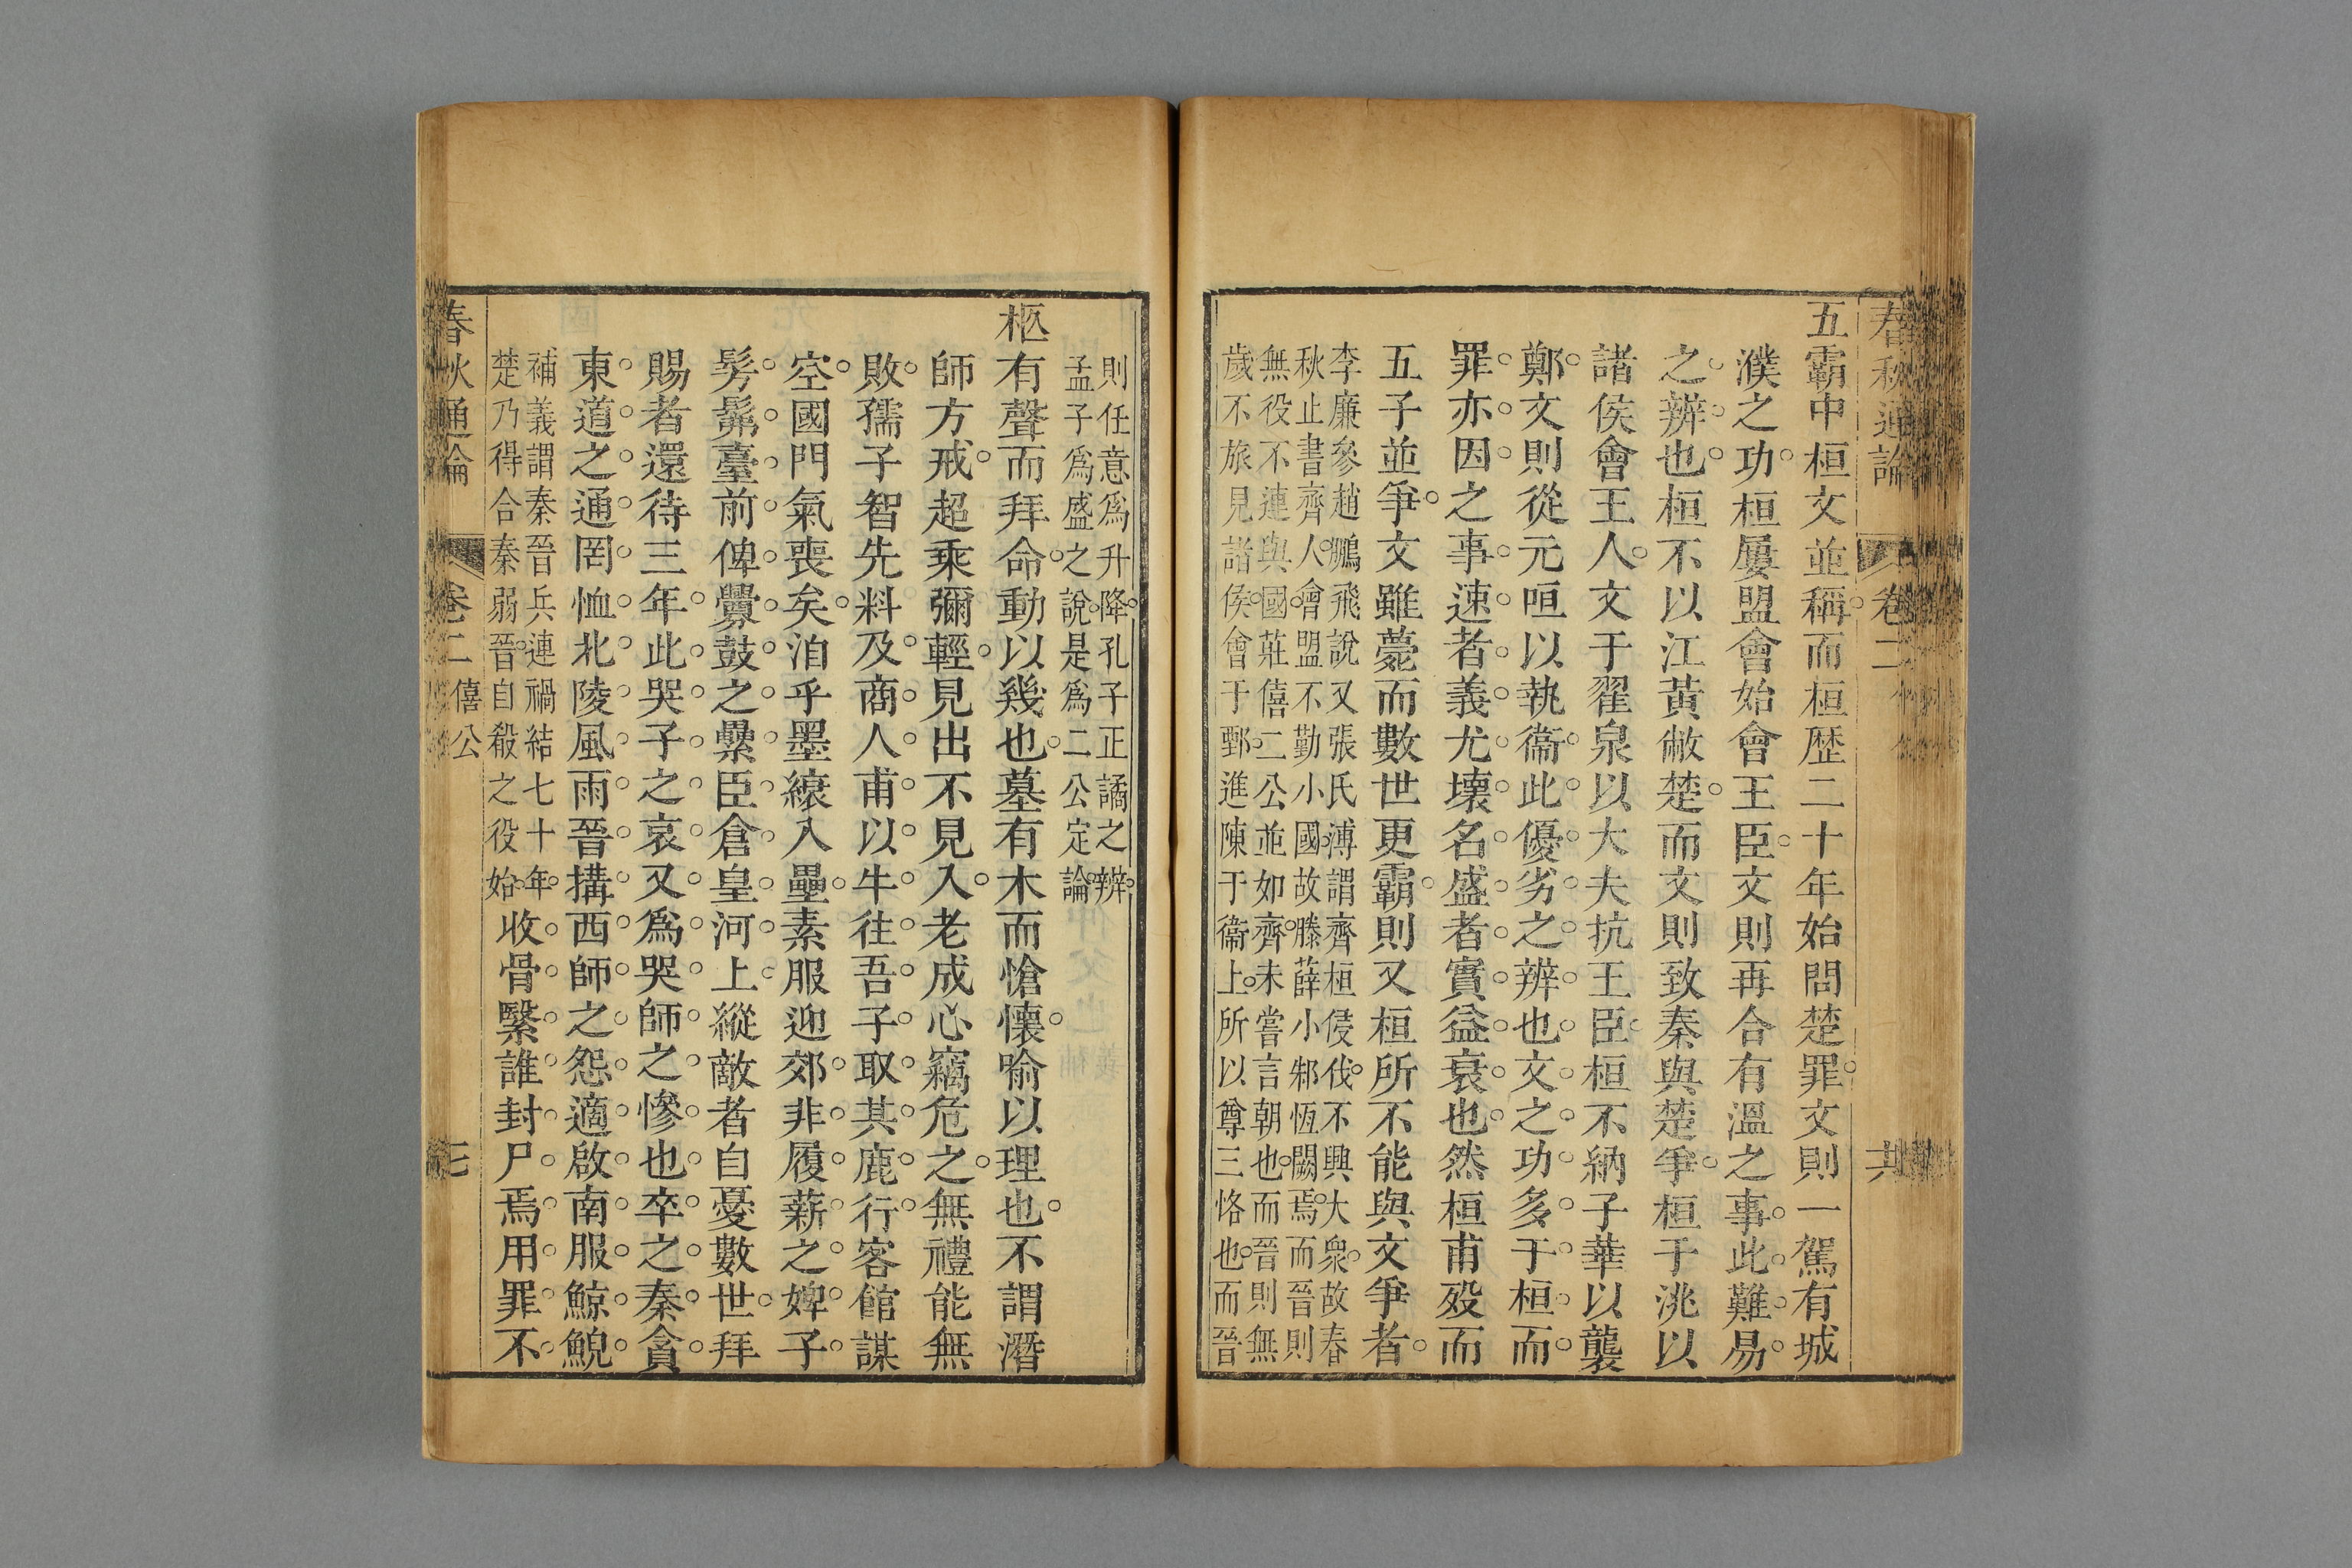 春秋通論
卷二
共
五霸中桓文並稱而桓歷二十年始問楚罪文則一駕有城
濮之功桓屢盟會始會王臣文則再合有溫之事此難易
之辨也桓不以江黃敝楚而文則致秦與楚爭桓于洮以
諸侯會王人文于翟泉以大夫抗王臣桓不納子華以襲
鄭文則從元咺以執衞此優劣之辨也文之功多于桓而
罪亦因之事速者義尤壞名盛者實益衰也然桓甫歿而
五子並爭文雖薨而數世更霸則又桓所不能與文爭者
李廉參趙鵬飛說又張氏溥謂齊桓侵伐不興大衆故春
秋止書齊人會盟不勤小國故滕薛小邾恆闕焉而晉則
無役不連與國莊僖二公並如齊未嘗言朝也而晉則無
歲不旅見諸侯會于鄄進陳于衞上所以尊三恪也而晉
則任意爲升降孔子正譎之辨
孟子爲盛之說是爲二公定論
柩有聲而拜命動以幾也墓有木而愴懷喻以理也不謂潛
師方戒超乘彌輕見出不見入老成心竊危之無禮能無
敗孺子智先料及商人甫以牛往吾子取其鹿行客館謀
空國門氣喪矣洎乎墨縗入壘素服迎郊非履薪之婢子
髣髴臺前俾釁鼓之纍臣倉皇河上縱敵者自憂數世拜
賜者還待三年此哭子之哀又爲哭師之慘也卒之秦貪
東道之通罔恤北陵風雨晉搆西師之怨適啟南服鯨鯢
補義謂秦晉兵連禍結七十年
楚乃得合秦弱晉自殽之役始
收骨繄誰封尸焉用罪不
春秋通論
卷二
僖公